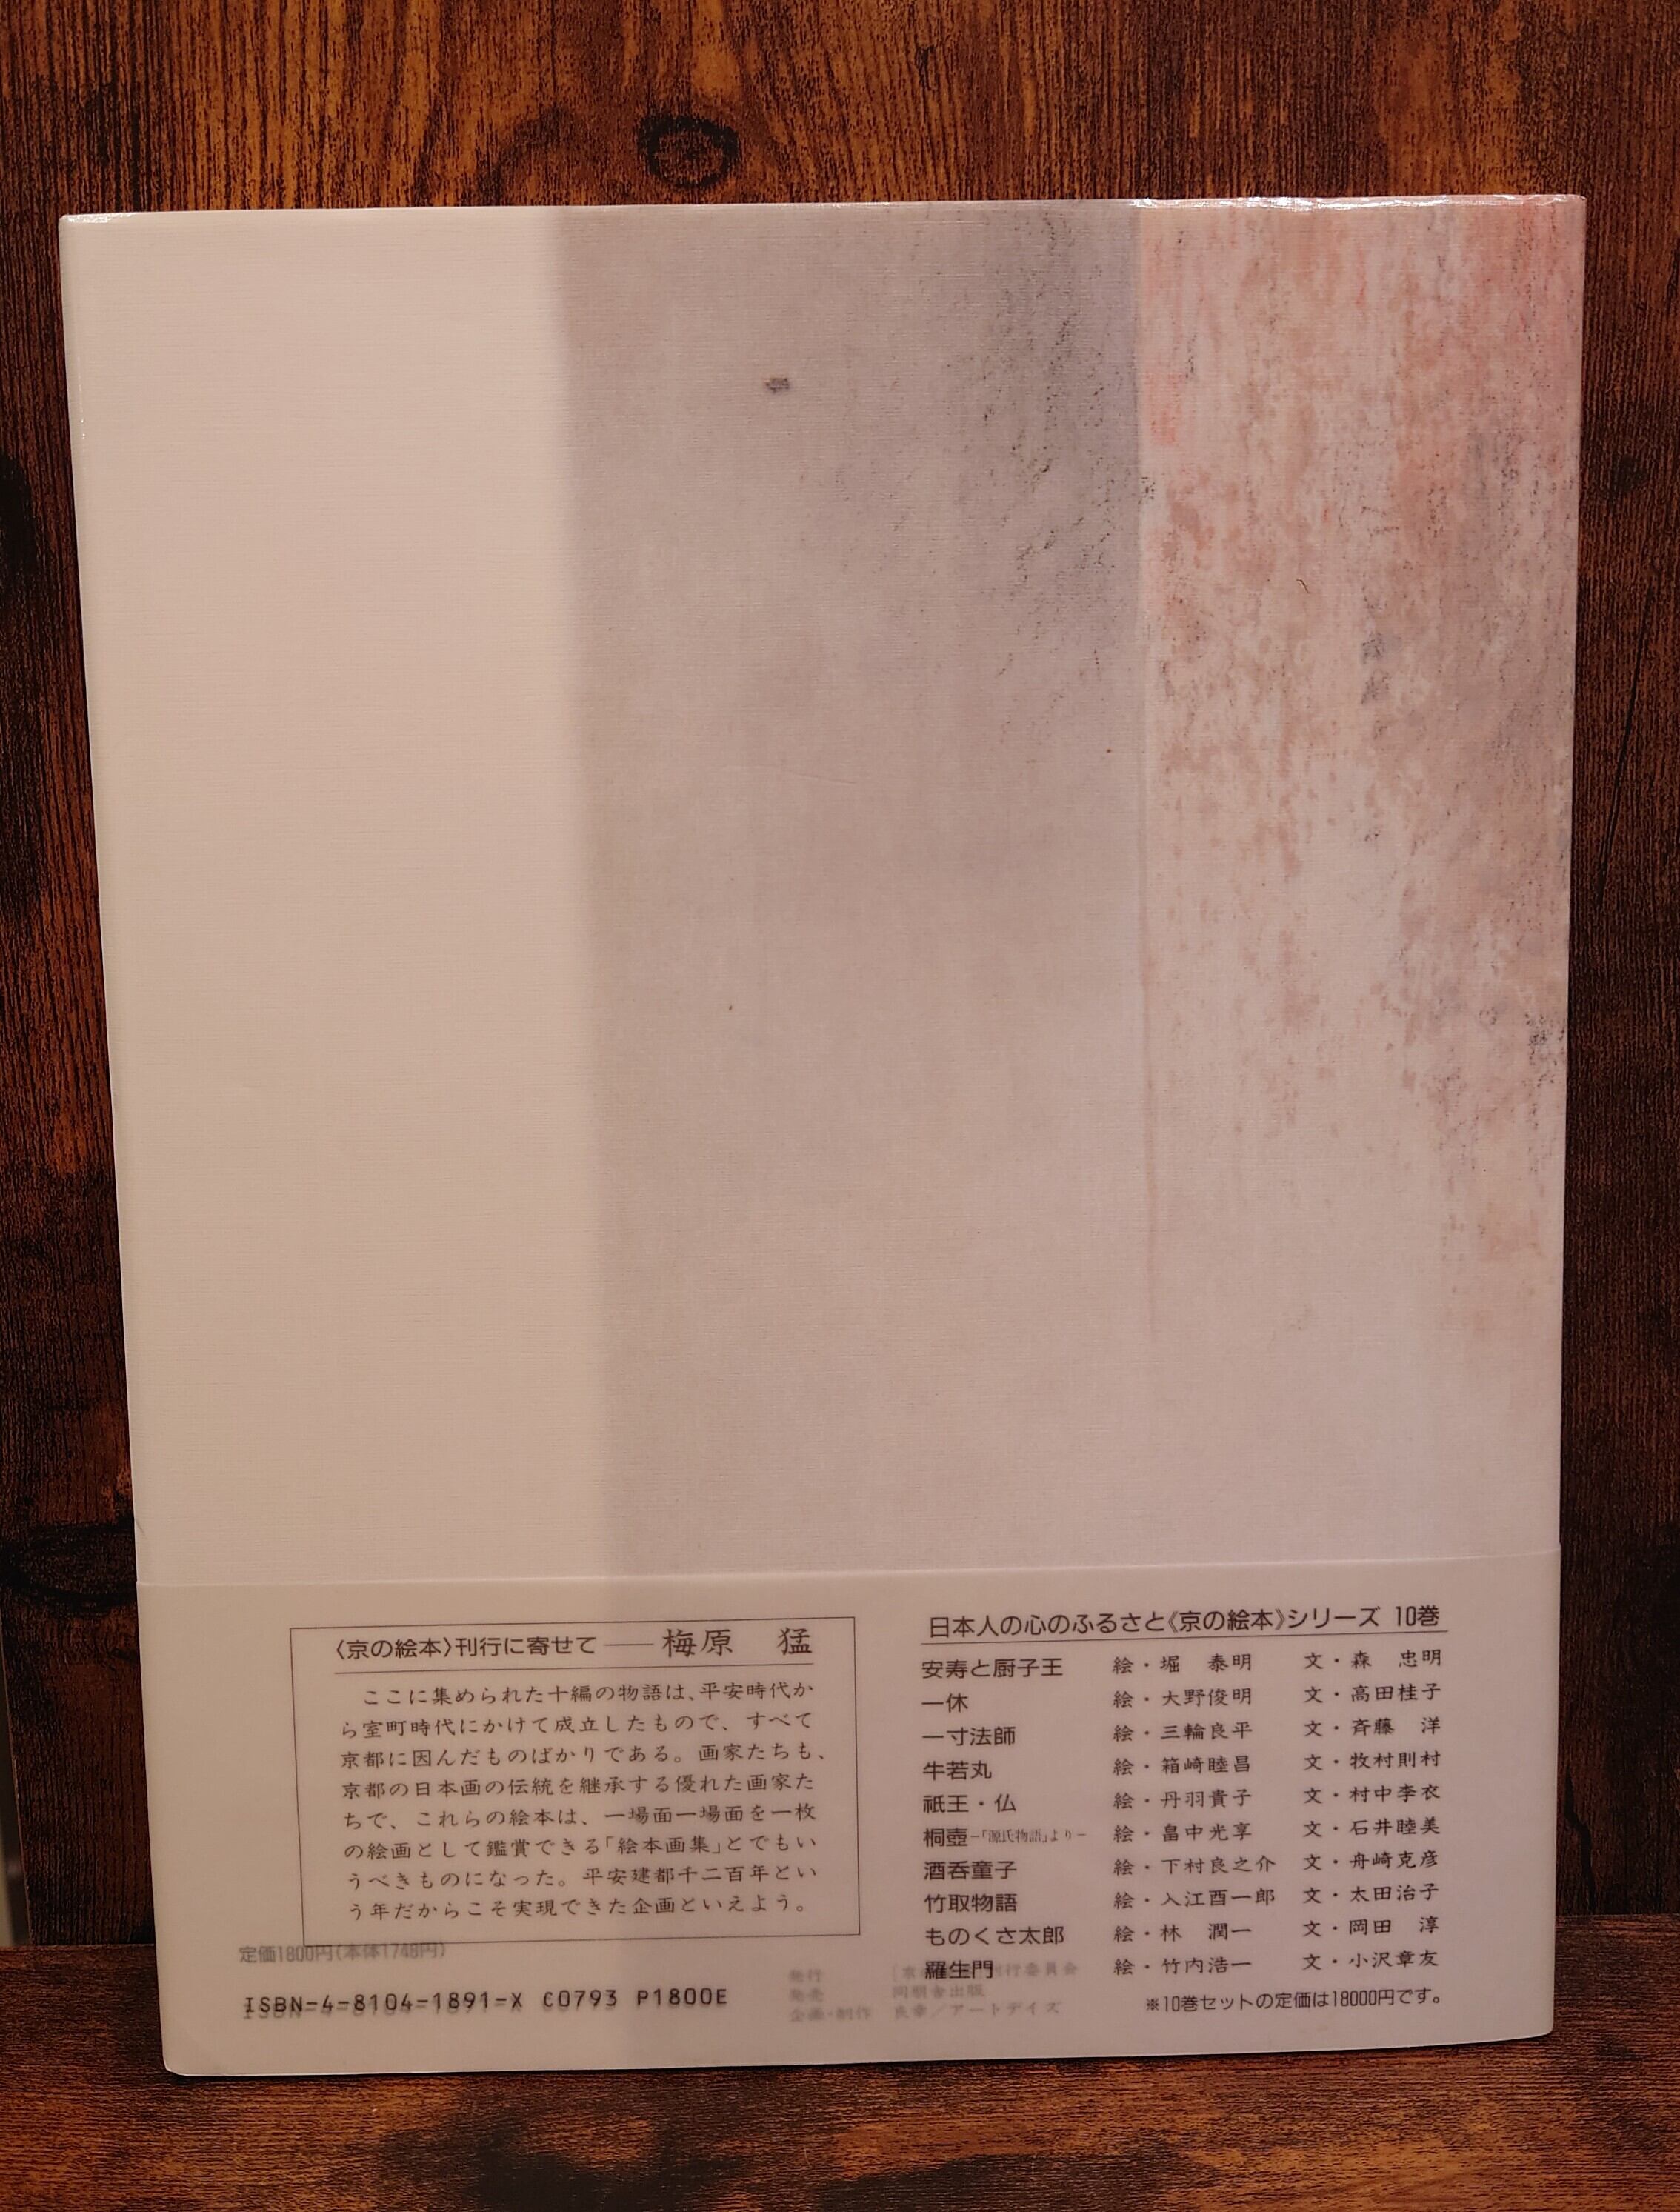 〈京の絵本〉刊行に寄せて——梅原　猛
ここに集められた十編の物語は、平安時代か
ら室町時代にかけて成立したもので、すべて
京都に因んだものばかりである。画家たちも、
京都の日本画の伝統を継承する優れた画家た
ちで、これらの絵本は、一場面一場面を一枚
の絵画として鑑賞できる「絵本画集」とでもい
うべきものになった。平安建都千二百年とい
う年だからこそ実現できた企画といえよう。
定価1800円(本体1748円)
ISBN-4-8104-1891-X C0793 P1800E
日本人の心のふるさと《京の絵本》シリーズ 10巻
安寿と厨子王 絵・堀　泰明 文・森　忠明
一休 絵・大野俊明 文・高田桂子
一寸法師 絵・三輪良平 文・斉藤　洋
牛若丸 絵・箱崎睦昌 文・牧村則村
祇王・仏 絵・丹羽貴子 文・村中李衣
桐壺−「源氏物語」より− 絵・畠中光享 文・石井睦美
酒呑童子 絵・下村良之介 文・舟崎克彦
竹取物語 絵・入江酉一郎 文・太田治子
ものくさ太郎 絵・林　潤一 文・岡田　淳
羅生門 絵・竹内浩一 文・小沢章友
※10巻セットの定価は18000円です。
発行 刊行委員会
発売 同朋舎出版
企画・制作 良幸／アートデイズ